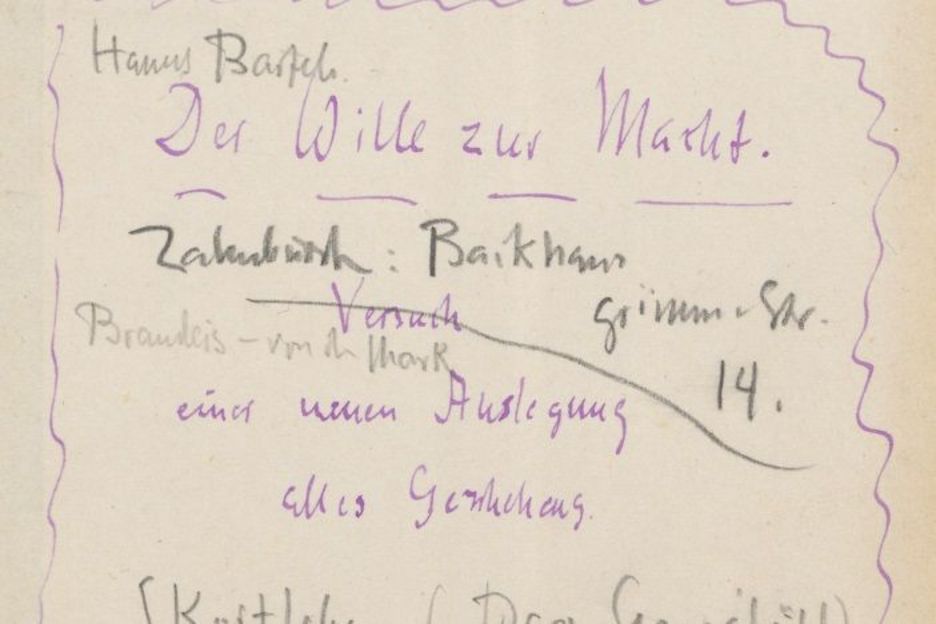 Der Wille zur Macht.
Zahnbürste: Backhaus
Grimm. Str.
14.
Versuch
Brandeis – von der Mark
einer neuen Auslegung
alles Geschehens.